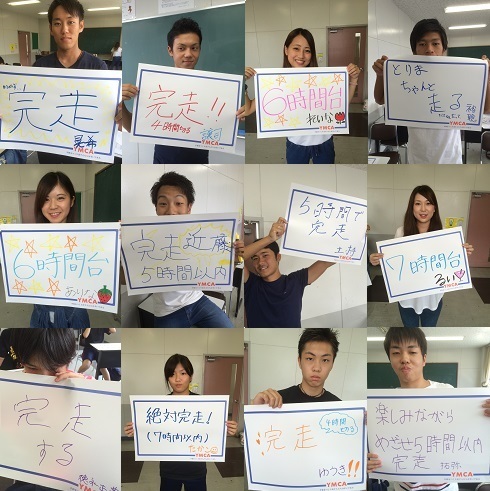 完走
YMCA
完走!!
4時間切る
YMCA
6時間台
れいな
YMCA
とりま
ちゃんと
走る
YMCA
6時間台
ありな
YMCA
完走 近藤
5時間以内
YMCA
5時間で
完走
YMCA
7時間台
るい
YMCA
完走
する
YMCA
絶対完走!
(7時間以内)
YMCA
完走
ゆうき!!
YMCA
楽しみながら
めざせ5時間以内
完走
YMCA